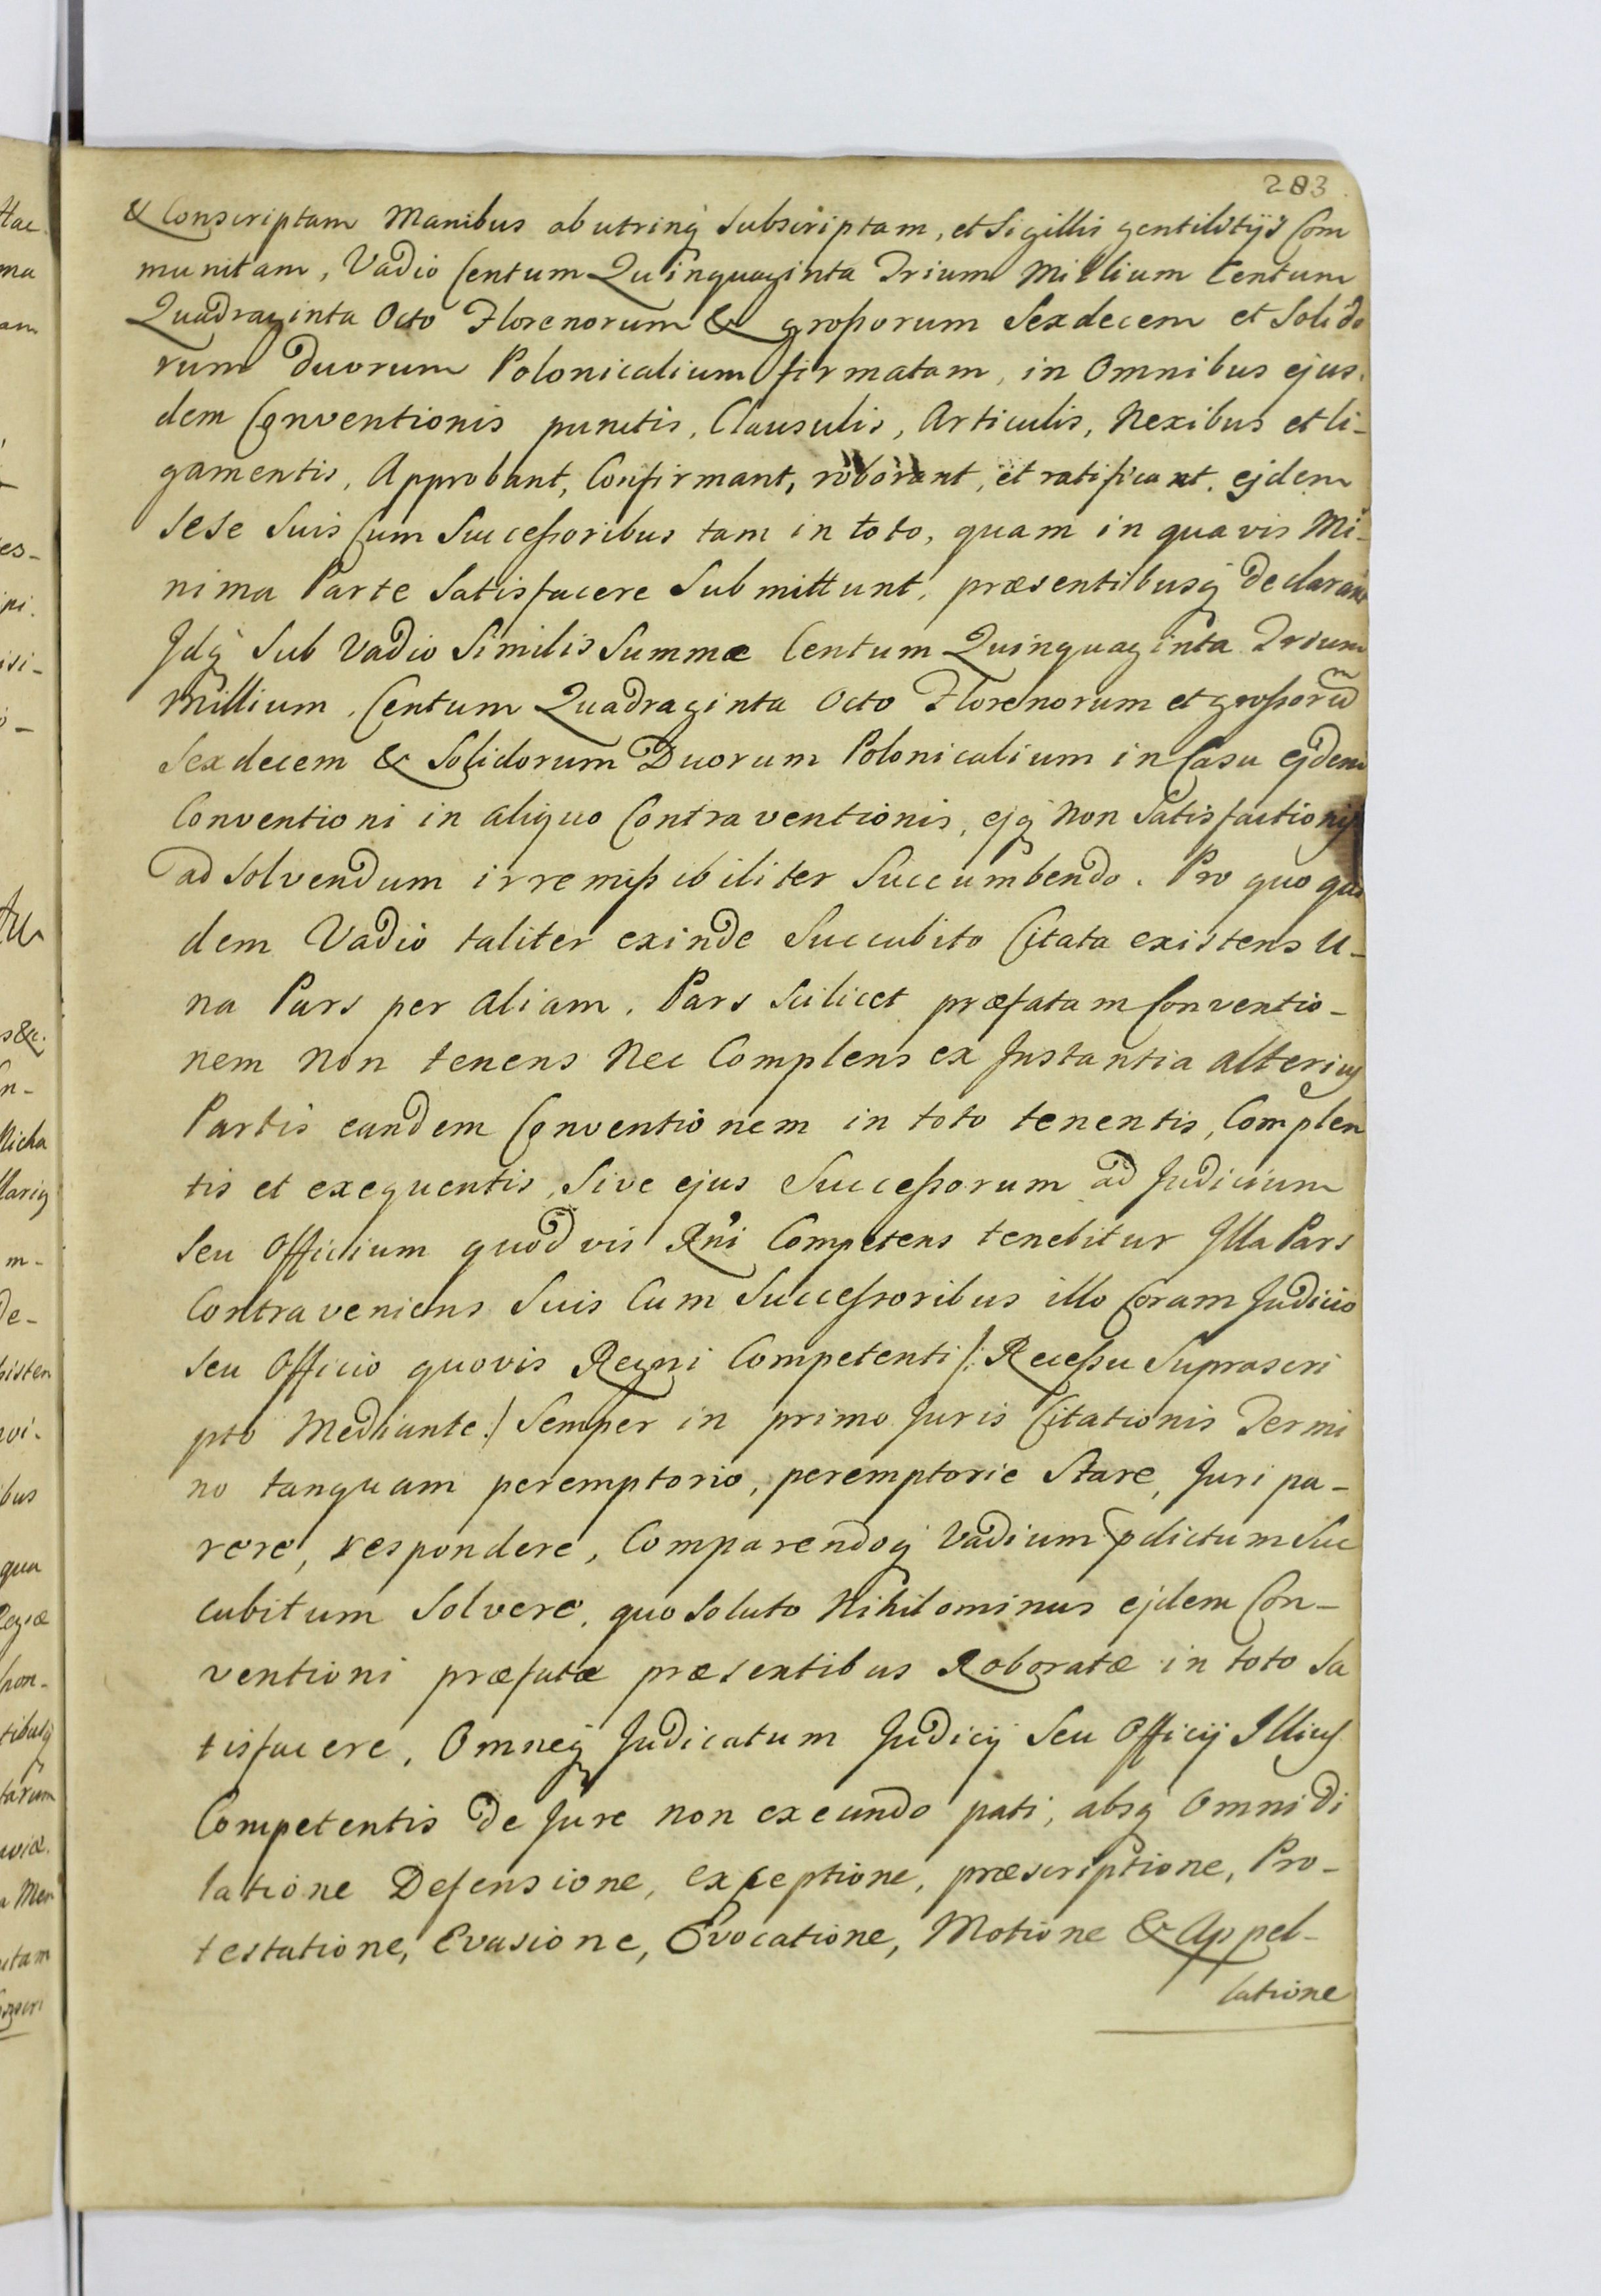 283
& Conscriptam Manibus ab utrinq; Subscriptam, et Sigillis gentilitijs Com
munitam, Vadio Centum Quinquaginta Trium Millium Centum
Quadraginta Octo Florenorum & großorum Sexdecem et Solido
rum Duorum Polonicalium firmatam, in Omnibus ejus
dem Conventionis punctis, Clausulis, Articulis, Nexibus et li-
gamentis, Approbant, Confirmant, roborant, et ratificant. ejdem
sese Suis Cum Succeßoribus tam in toto, quam in quavis Mi-
nima Parte Satisfacere Submittunt, præsentibusq; Declarant
Jdq; Sub Vadio Similis Summæ Centum Quinquaginta Trium
Millium, Centum Quadraginta Octo Florenorum et großorum
Sexdecem & Solidorum Duorum Polonicalium in Casu ejdem
Conventioni in aliquo Contraventionis, ejq; Non Satisfactionis
ad Solvendum irremißibiliter Succumbendo. Pro quo quo
dem Vadio taliter exinde Succubito Citata existens U-
na Pars per aliam, Pars Scilicet præfatam Conventio-
nem Non tenens Nec Complens ex Jnstantia alterius
Partis eandem Conventionem in toto tenentis, Complen
tis et exequentis, Sive ejus Succeßorum ad Judicium
Seu Officium quodvis Rni Competens tenebitur Jlla Pars
Contraveniens Suis Cum Succeßoribus illo Coram Judicio
seu Officio quovis Regni Competenti /: Receßu Suprascri
pto Mediante :/ Semper in primo Juris Citationis Termi
no tanquam peremptorio, peremptorie Stare, Juri pa-
rere, respondere, Comparendoq; Vadium pdictum Suc
cubitum Solvere, quo Soluto Nihilominus ejdem Con-
ventioni præfatæ præsentibus Roboratæ in toto Sa
tisfacere, Omneq; Judicatum Judicij Seu Officij Illius
Competentis De Jure non exeundo pati, absq; Omni Di
latione Defensione, exceptione, præscriptione, Pro-
testatione, Evasione, Evocatione, Motione & Appel-
latione